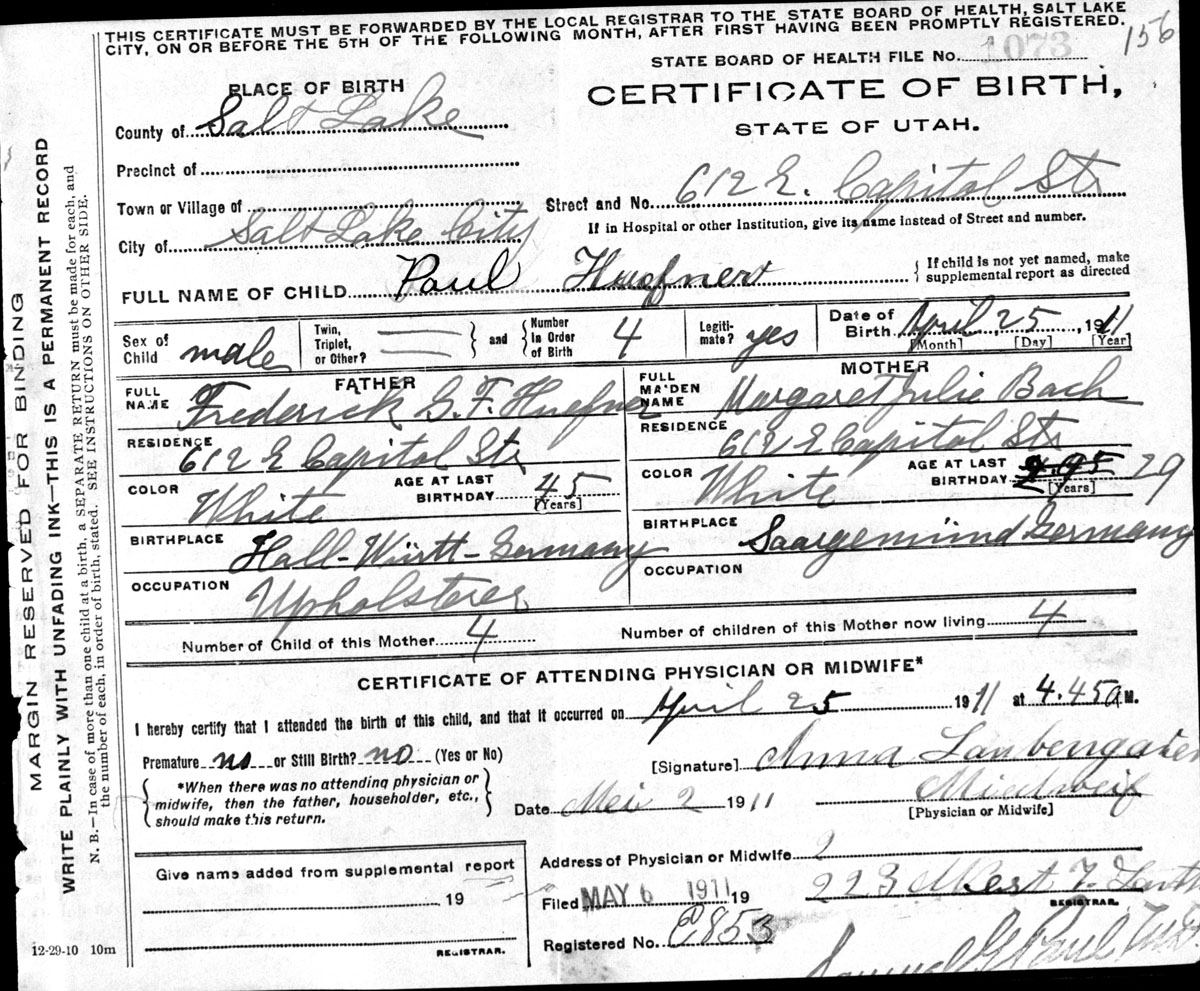 THIS CERTIFICATE MUST BE FORWARDED BY THE LOCAL REGISTRAR TO THE STATE BOARD OF HEALTH, SALT LAKE
CITY, ON OR BEFORE THE 5TH OF THE FOLLOWING MONTH, AFTER FIRST HAVING BEEN PROMPTLY REGISTERED.
156
STATE BOARD OF HEALTH FILE No. 1073
PLACE OF BIRTH
CERTIFICATE OF BIRTH,
STATE OF UTAH.
County of Salt Lake
Precinct of
Town or Village of
Street and No. 612 E. Capitol Str
If in Hospital or other Institution, give its name instead of Street and number.
City of Salt Lake City
FULL NAME OF CHILD Paul Huefner
{ If child is not yet named, make
supplemental report as directed
Sex of Child male
Twin, Triplet, or Other? } and { Number In Order of Birth 4
Legiti-mate? yes
Date of Birth April 25, 1911
[Month] [Day] [Year]
FATHER
FULL NAME Frederick G. F. Huefner
RESIDENCE 612 E Capitol Str
COLOR White
AGE AT LAST BIRTHDAY 45
[Years]
BIRTHPLACE Hall-Württ-Germany
OCCUPATION Upholsterer
MOTHER
FULL MAIDEN NAME Margaret Julie Bach
RESIDENCE 612 E Capitol Str
COLOR White
AGE AT LAST BIRTHDAY 29
[Years]
BIRTHPLACE Saargemünd Germany
OCCUPATION
Number of Child of this Mother 4
Number of children of this Mother now living 4
CERTIFICATE OF ATTENDING PHYSICIAN OR MIDWIFE*
I hereby certify that I attended the birth of this child, and that it occurred on April 25 1911 at 4.45 a M.
Premature no or Still Birth? no (Yes or No)
{ *When there was no attending physician or
midwife, then the father, householder, etc.,
should make this return. }
[Signature] Anna Laubengaier
Date Mei 2 1911
[Physician or Midwife]
Give name added from supplemental report
19
REGISTRAR.
Address of Physician or Midwife 2
223 West 7
Filed MAY 6 1911 19
REGISTRAR.
Registered No. 853
Samuel G Paul M.D.
12-29-10 10m
MARGIN RESERVED FOR BINDING
WRITE PLAINLY WITH UNFADING INK—THIS IS A PERMANENT RECORD
N. B.—In case of more than one child at a birth, a SEPARATE RETURN must be made for each, and
the number of each, in order of birth, stated. SEE INSTRUCTIONS ON OTHER SIDE.